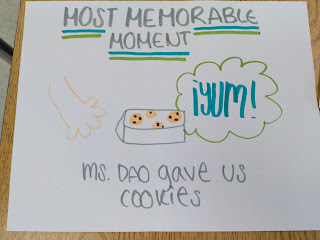 MOST MEMORABLE
MOMENT
¡YUM!
MS. DAO gave us
COOKIES